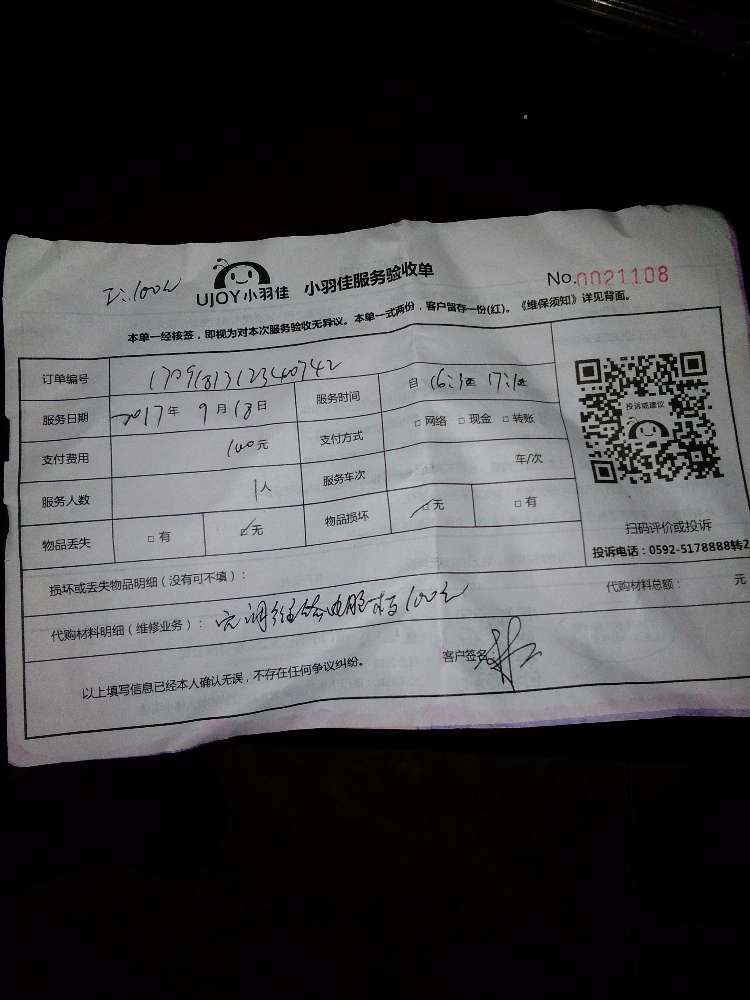 UJOY小羽佳 小羽佳服务验收单 No.0021108
本单一经核签，即视为对本次服务验收无异议。本单一式两份，客户留存一份(红)。《维保须知》详见背面。
订单编号
服务日期 2017年 9月18日 服务时间
支付费用 100元 支付方式 □网络 □现金 □转账
服务人数 1人 服务车次 车/次
物品丢失 □有 □无 物品损坏 □无 □有
投诉或建议
扫码评价或投诉
投诉电话：0592-5178888转2
损坏或丢失物品明细（没有可不填）：
代购材料明细（维修业务）： 空调维修电脑板100元 代购材料总额： 元
以上填写信息已经本人确认无误，不存在任何争议纠纷。 客户签名